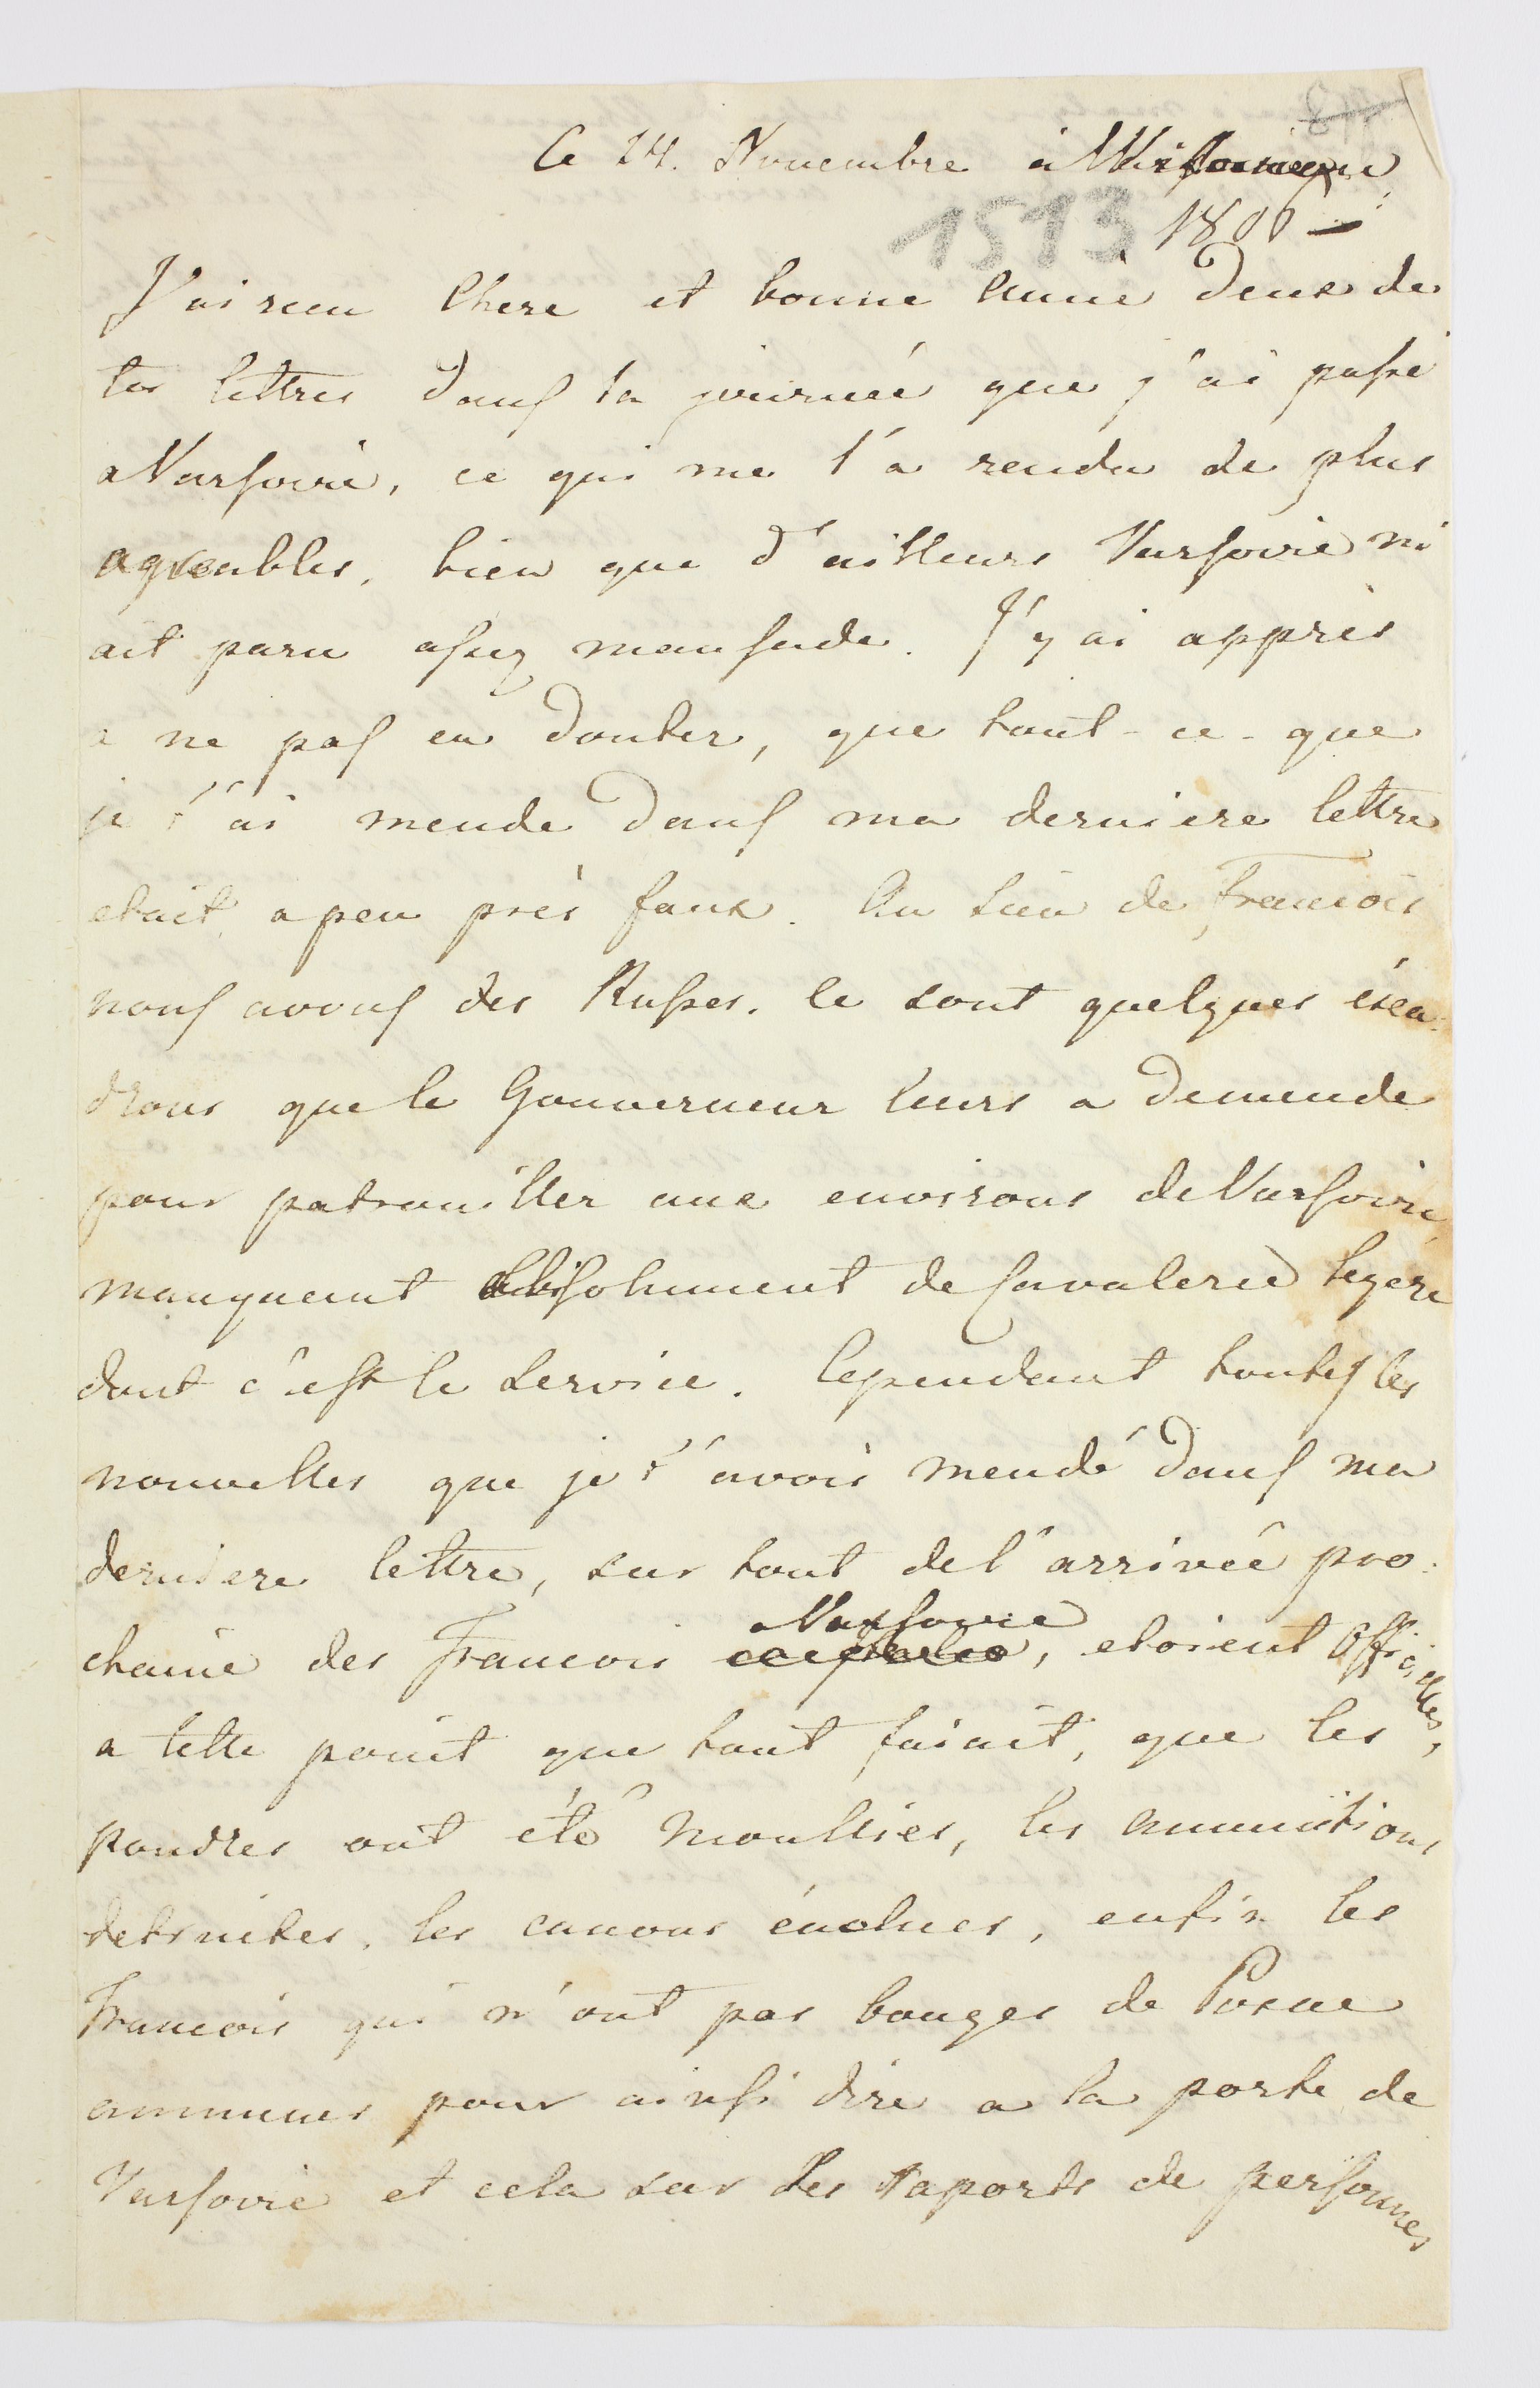 Ce 24. Novembre à
1513 1806
J'ai recu Chere et bonne Amie deux de
tes lettres dans la journeé que j'ai passé
a Varsovie, ce qui me l'a rendu de plus
agreables, bien que d'ailleurs Varsovie m'
ait paru assez maussade. J'y ai appris
a ne pas en douter, que tout-ce-que
je t'ai mende dans ma derniere lettre
etait a peu près faux. Au lieu de Francois
nous avons des Russes. Ce sont quelques esca:
drons que le Gouverneur leurs a demende
pour patrouiller aux environs de Varsovie,
manquant absolument de Cavalerie legere
dont c'est le service. Cependant toutes les
nouvelles que je t'avois mendé dans ma
derniere lettre, sur tout de l'arriveé pro:
chaine des Francois
a Varsovie
, etoient Officielles,
a telle point que tout fuiait, que les
poudres ont été mouilliés, les amunitions
detruites, les canons énclués, enfin les
Francois qui n'ont pas bouges de Posne
annuncés pour ainsi dire a la porte de
Varsovie et cela sur les raports de personnes